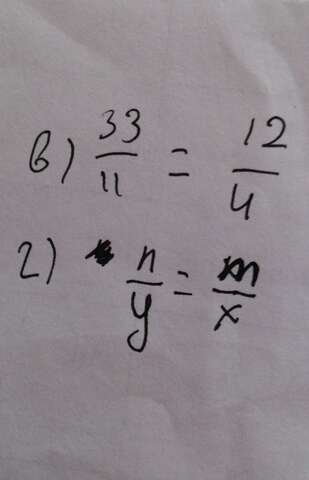 в) 33/11 = 12/4
г) n/y = m/x